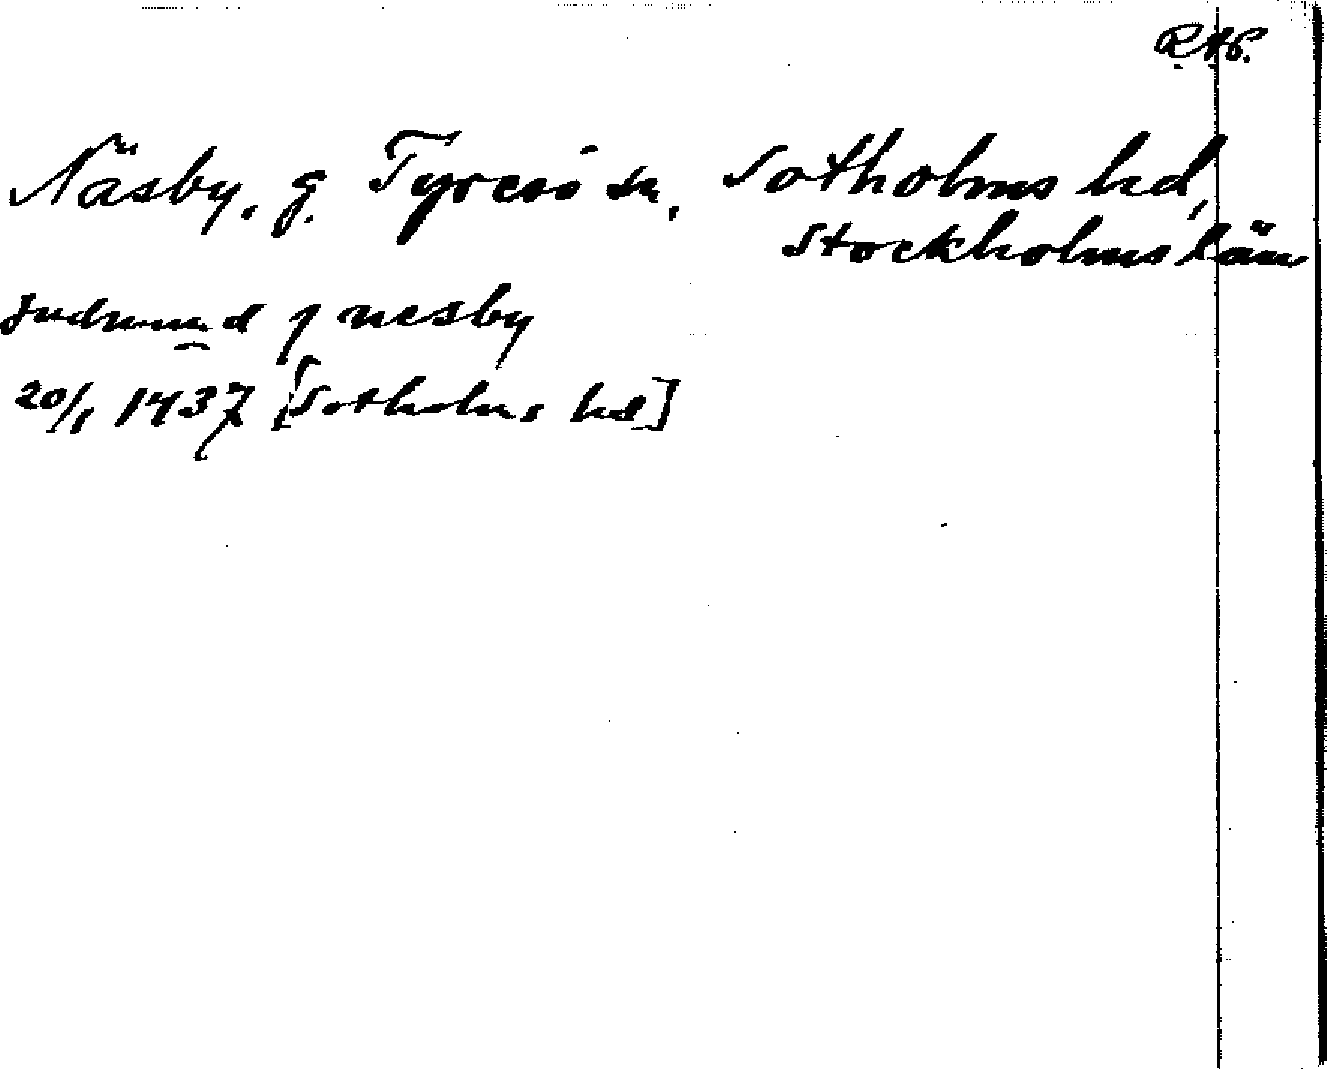 RAP.
Näsby, g. Tyresö sn, Sotholms hd,
Stockholms län
Judmund j nesby
20/1 1437 [Sotholms hd]